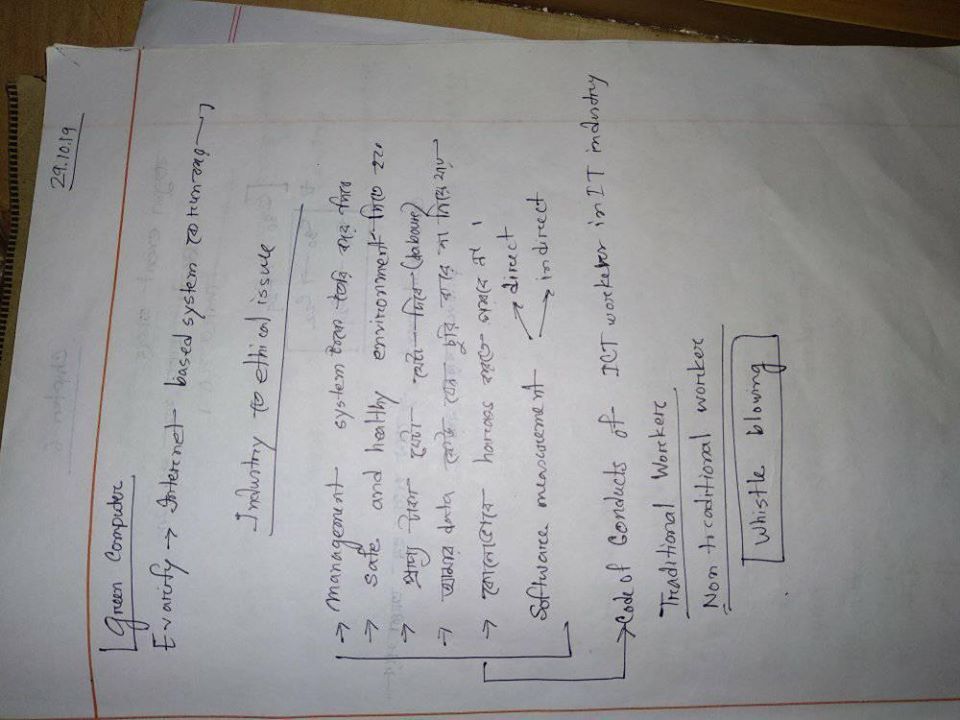 29.10.19
Green Computer
Evarify → Internet based system
Industry to ethical issue
→ Management system করে দিবে
→ safe and healthy environment দিতে হবে
→ প্রাপ্য টাকা যেটা সেটা দিবে (labour)
→ আমার data কেউ যেন চুরি করে না নিয়ে যায়
→ কোনোভাবে harrass করতে পারবে না।
Software measurement → direct
→ indirect
→ Code of Conducts of ICT worker in IT industry
Traditional Workers
Non traditional worker
Whistle blowing